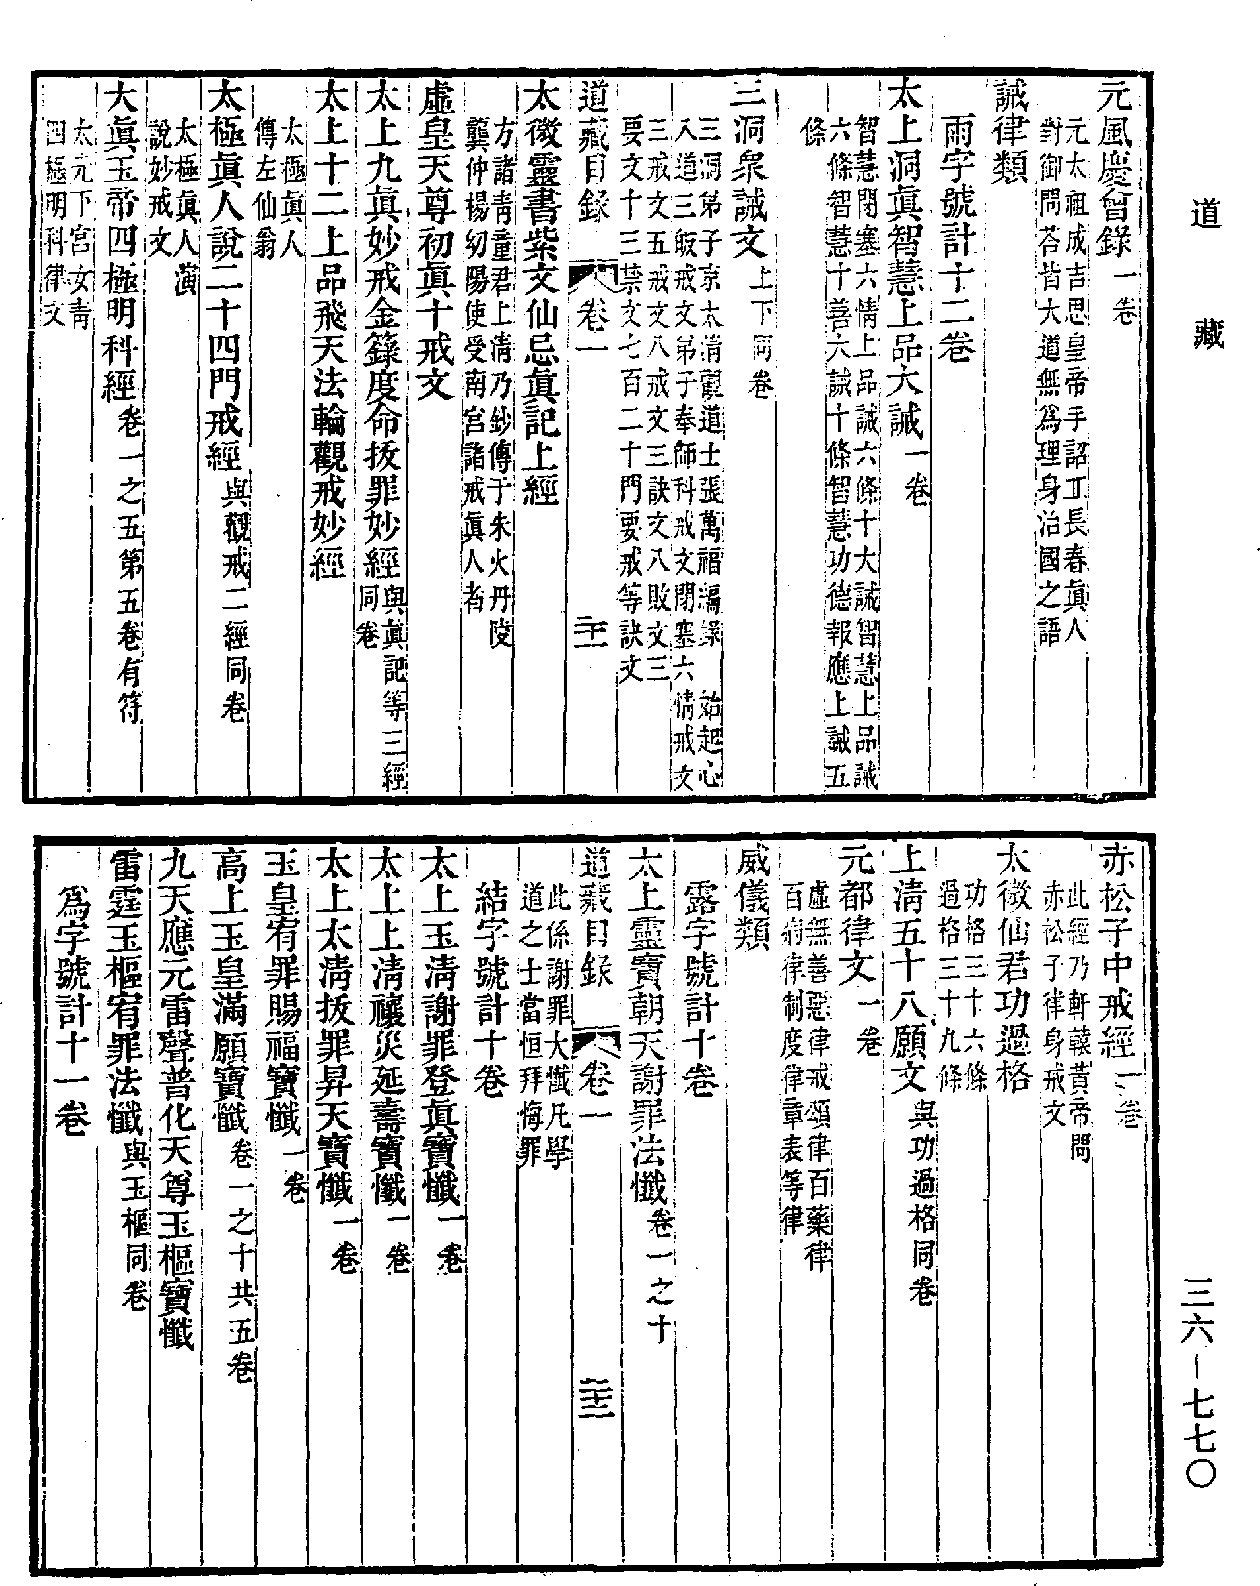 道藏
元風慶會錄一卷
元太祖成吉思皇帝手詔丘長春眞人
對御問荅皆大道無爲理身治國之語
誡律類
雨字號計十二卷
太上洞眞智慧上品大誡一卷
智慧閉塞六情上品誡六條十大誡智慧上品誡
六條智慧十善六誡十條智慧功德報應上誡五
條
三洞衆誡文上下同卷
三洞弟子京太清觀道士張萬福編錄 始起心
入道三皈戒文弟子奉師科戒文閉塞六情戒文
三戒文五戒文八戒文三訣文八敗文三
要文十三禁文七百二十門要戒等訣文
道藏目錄 卷一 二十一
太微靈書紫文仙忌眞記上經
方諸青童君上清乃鈔傳于朱火丹陵
龔仲楊幼陽使受南宮諸戒眞人者
虛皇天尊初眞十戒文
太上九眞妙戒金籙度命拔罪妙經與眞記等三經
同卷
太上十二上品飛天法輪觀戒妙經
太極眞人
傳左仙翁
太極眞人說二十四門戒經與觀戒二經同卷
太極眞人演
說妙戒文
大眞玉帝四極明科經卷一之五第五卷有符
太元下宮女青
四極明科律文
赤松子中戒經一卷
此經乃軒轅黃帝問
赤松子律身戒文
太微仙君功過格
功格三十六條
過格三十九條
上清五十八願文與功過格同卷
元都律文一卷
虛無善惡律戒頌律百藥律
百病律制度律章表等律
威儀類
露字號計十卷
太上靈寶朝天謝罪法懺卷一之十
道藏目錄 卷一 二十二
此係謝罪大懺凡學
道之士當恒拜悔罪
結字號計十卷
太上玉清謝罪登眞寶懺一卷
太上上清禳災延壽寶懺一卷
太上太清拔罪昇天寶懺一卷
玉皇宥罪賜福寶懺一卷
高上玉皇滿願寶懺卷一之十共五卷
九天應元雷聲普化天尊玉樞寶懺
雷霆玉樞宥罪法懺與玉樞同卷
爲字號計十一卷
三六—七七〇